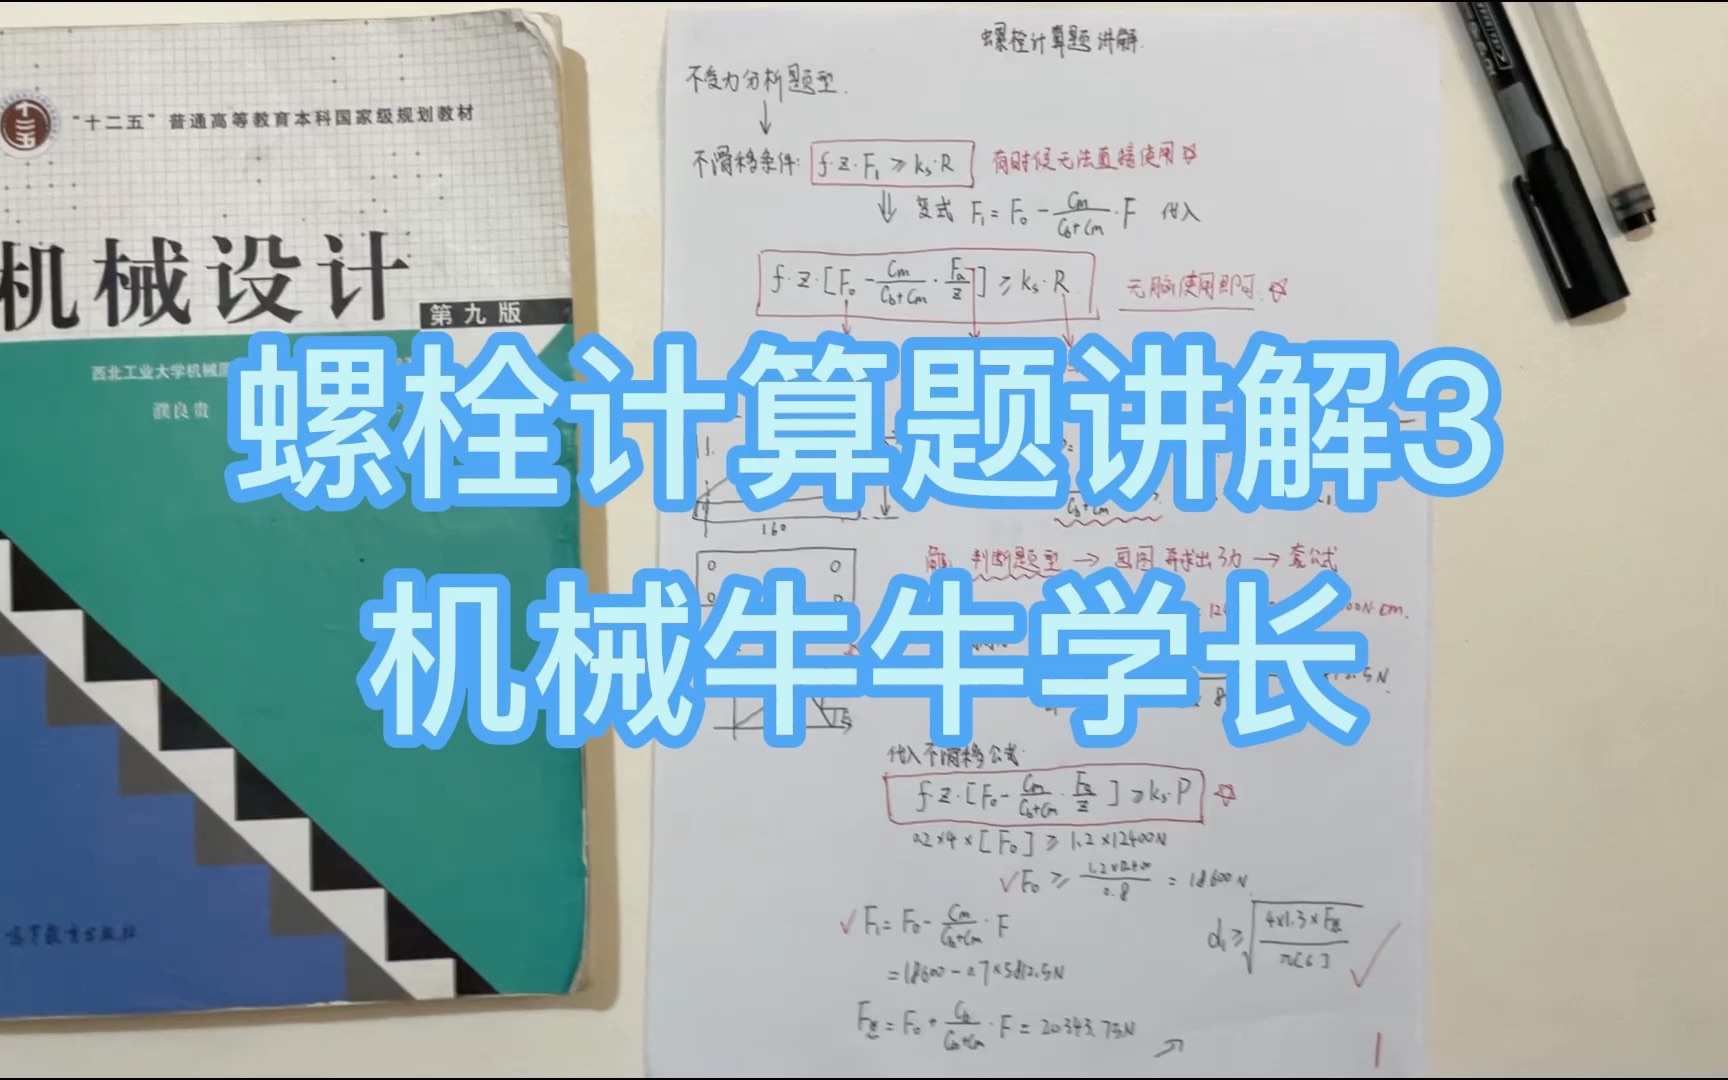 螺栓计算题讲解3
机械牛牛学长
"十二五"普通高等教育本科国家级规划教材
机械设计
第九版
西北工业大学机械原
濮良贵
高等教育出版社
螺栓计算题讲解.
不受力分析题型.
不滑移条件: f·z·F₁ ≥ kₛ·R 有时候无法直接使用☆
复式 F₁ = F₀ - Cm/(Cb+Cm)·F 代入
f·z·[F₀ - Cm/(Cb+Cm)·Fa/z] ≥ kₛ·R 无脑使用即可.☆
160
Cb+Cm
解: 判断题型 → 画图 再求出力 → 套公式
代入不滑移公式:
f·z·[F₀ - Cm/(Cb+Cm)·Fa/z] ≥ kₛ·P ☆
0.2×4×[F₀] ≥ 1.2×12400N
√F₀ ≥ 1.2×12400/0.8 = 18600N
√F₁ = F₀ - Cm/(Cb+Cm)·F
= 18600 - 0.7×5812.5N
d₁ ≥ √(4×1.3×F总/π[σ])
F总 = F₀ + Cb/(Cb+Cm)·F = 20343.75N